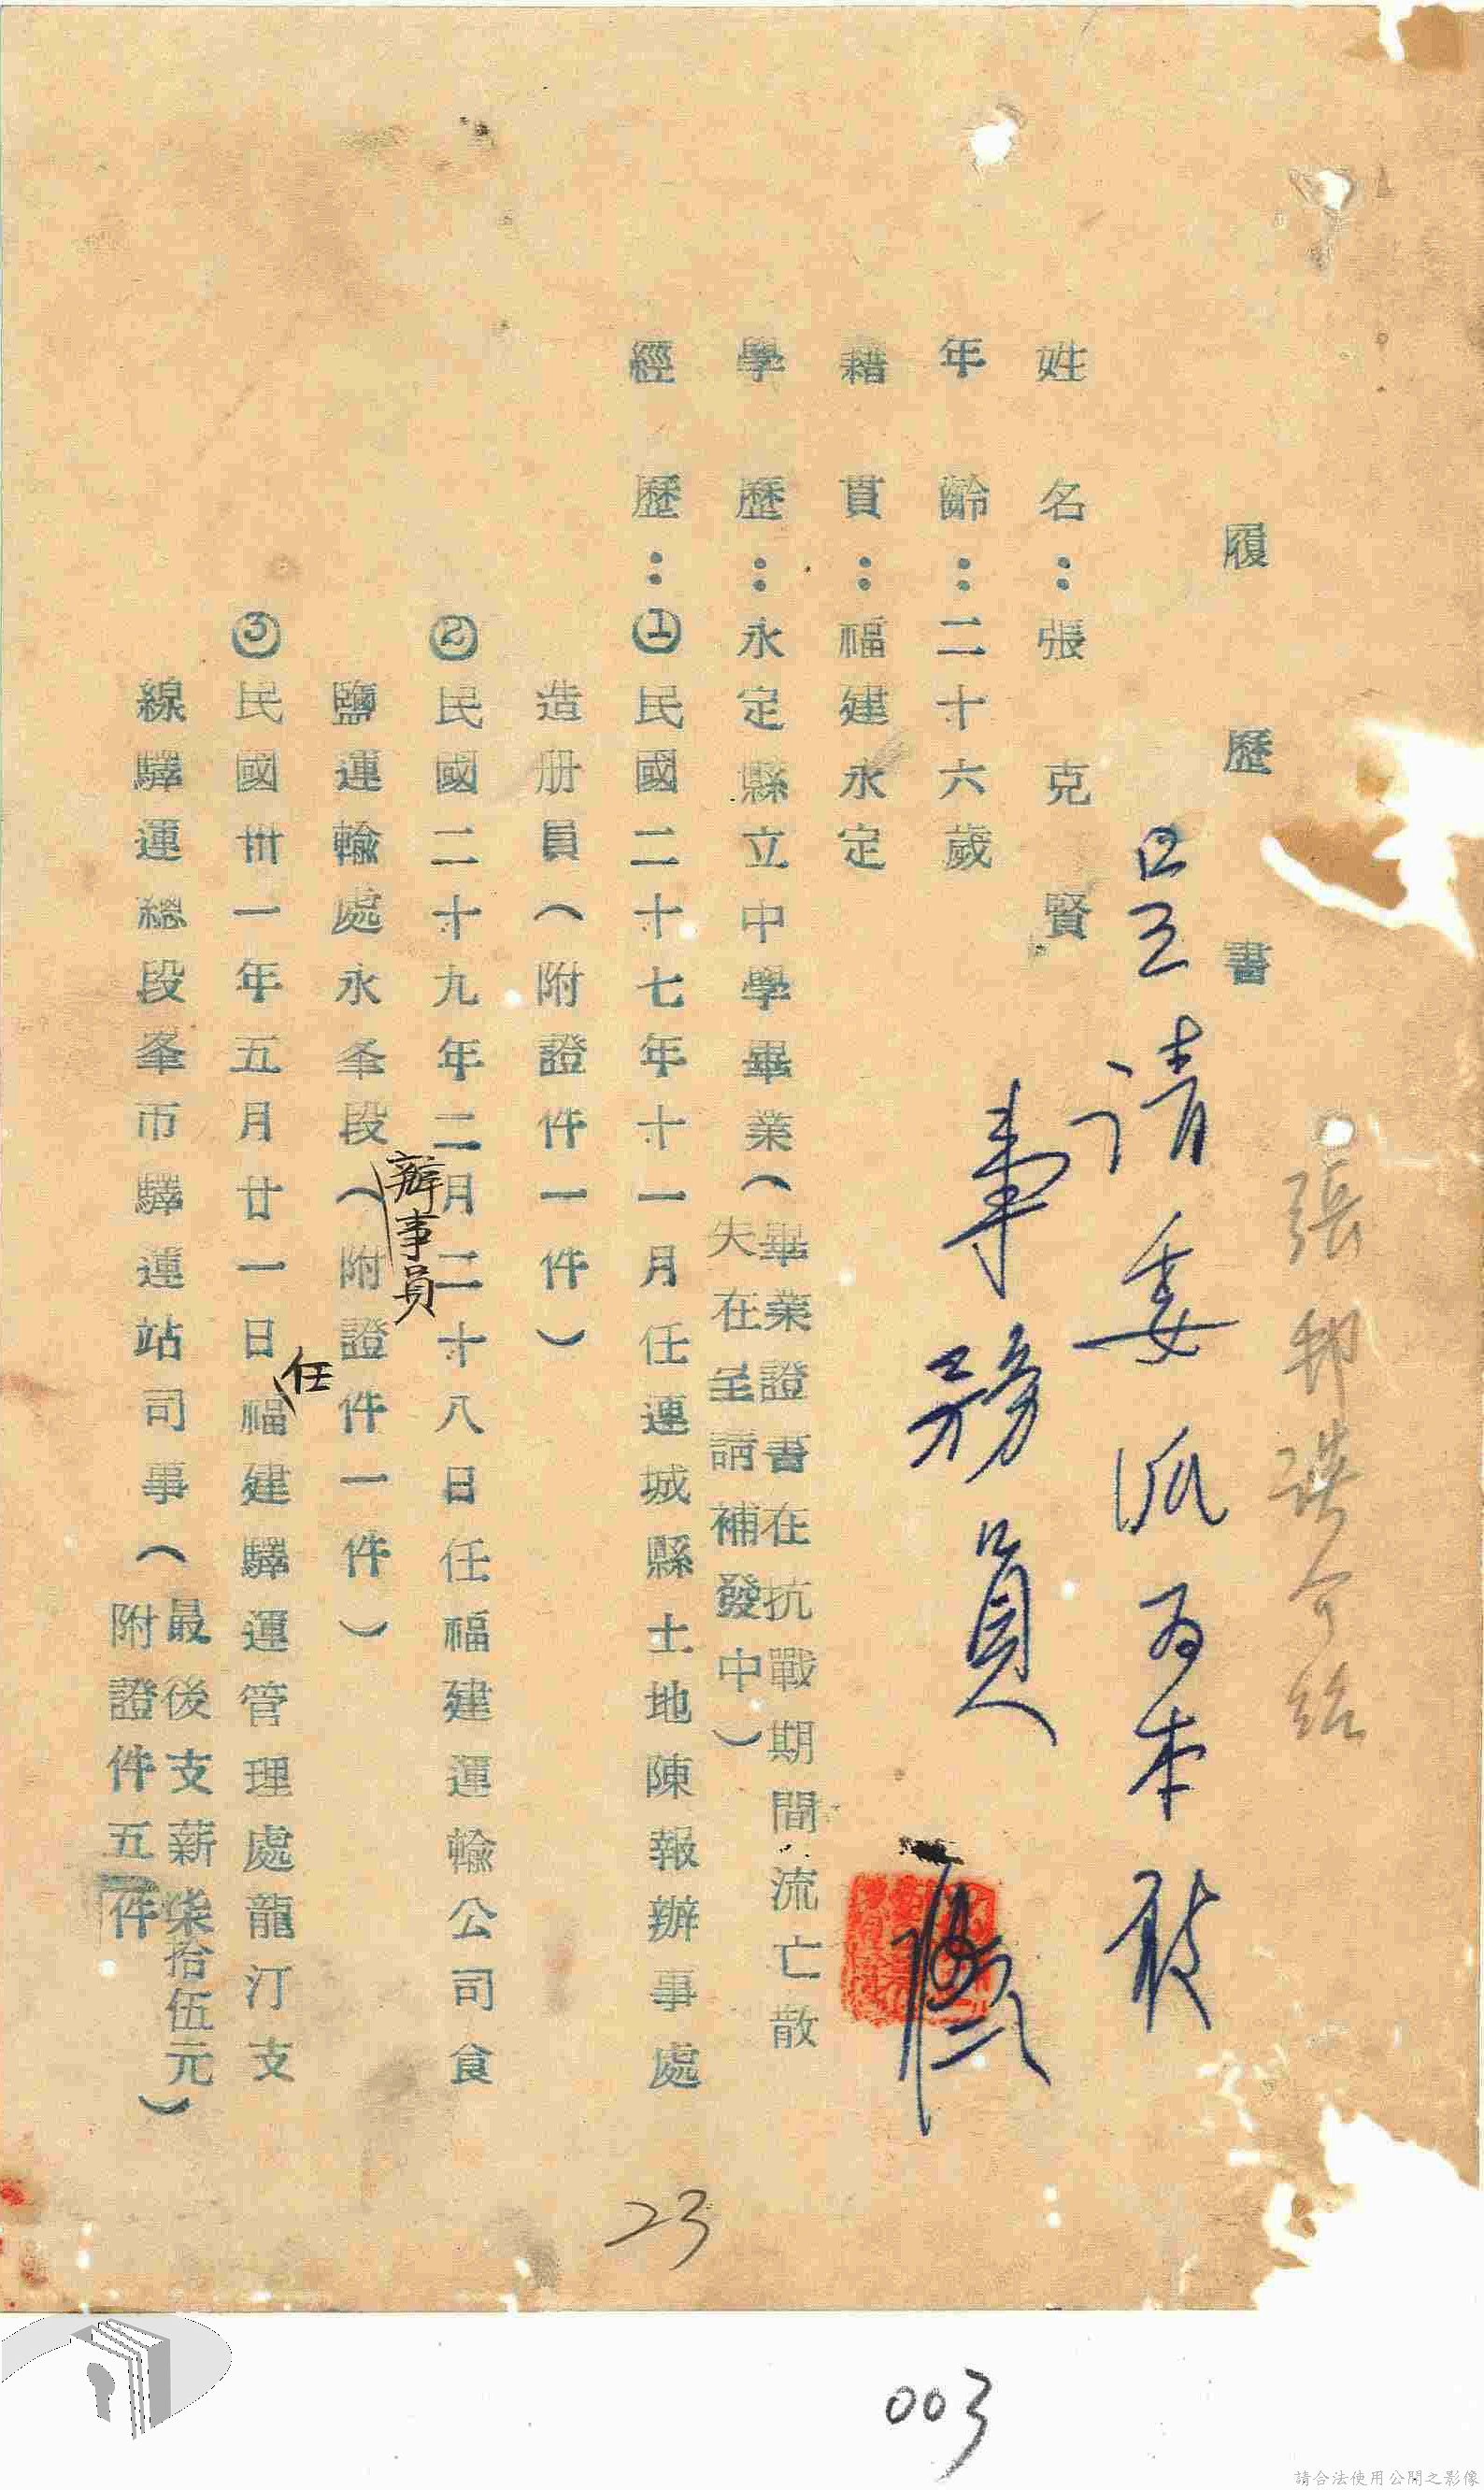 履歷書
張邦 介紹
呈請委派為本
事務員
姓名：張克賢
年齡：二十六歲
籍貫：福建永定
學歷：永定縣立中學畢業（畢業證書在抗戰期間流亡散
失在呈請補發中）
經歷：①民國二十七年十一月任連城縣土地陳報辦事處
造册員（附證件一件）
②民國二十九年二月二十八日任福建運輸公司食
鹽運輸處永夆段辦事員（附證件一件）
③民國卅一年五月廿一日任福建驛運管理處龍汀支
線驛運總段夆市驛運站司事（最後支薪柒拾伍元
附證件五件）
23
003
請合法使用公開之影像